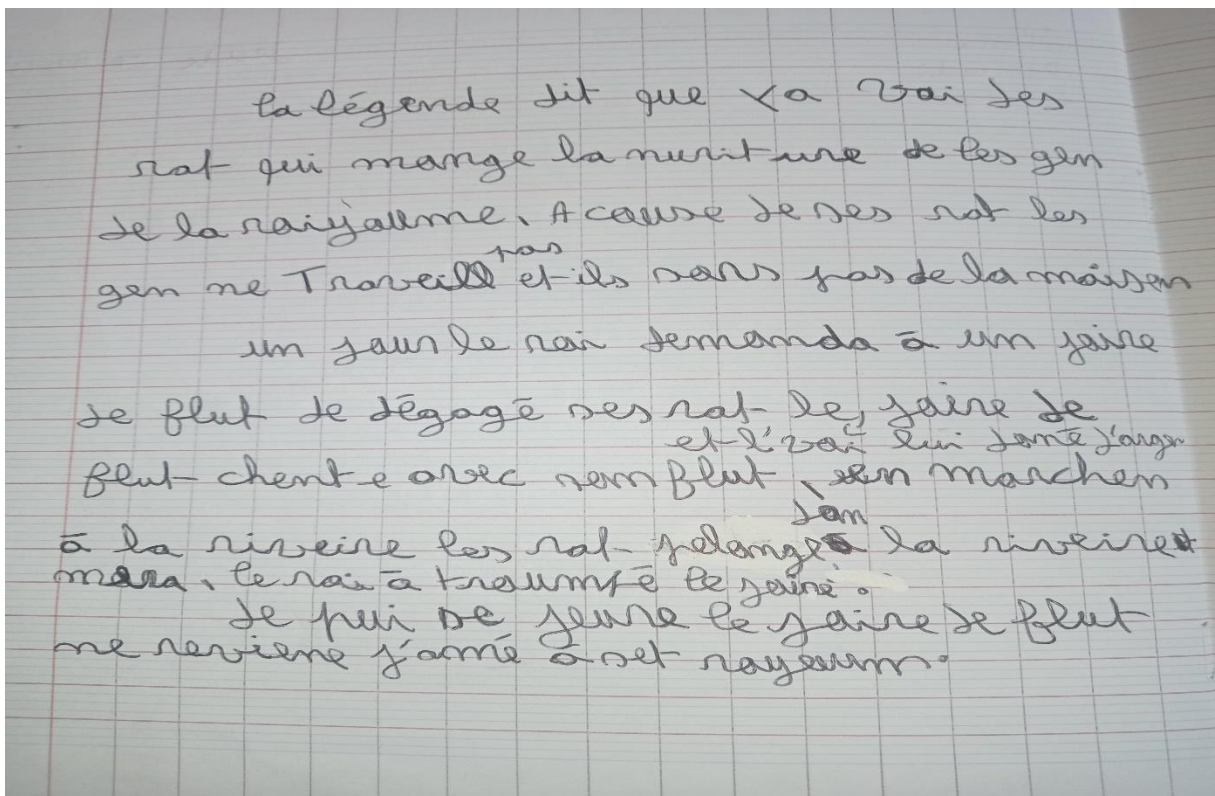 la légende dit que ya vai des
rat qui mange la nuriture de les gen
de la raiyaume. A cause de ses rat les
pas
gen ne Traveill et ils sans pas de la maisen
un jaur le rai demanda à un jaire
de flut de dégagé ses rat le jaire de
et l'vai lui donné d'argen
flut chente avec sem flut. en marchen
dan
à la riveire les rat pelonge la riveire et
mara. le rai à traumpé le jaire.
de pui se jeure le jaire de flut
ne reviene j'amé à set rayeum.